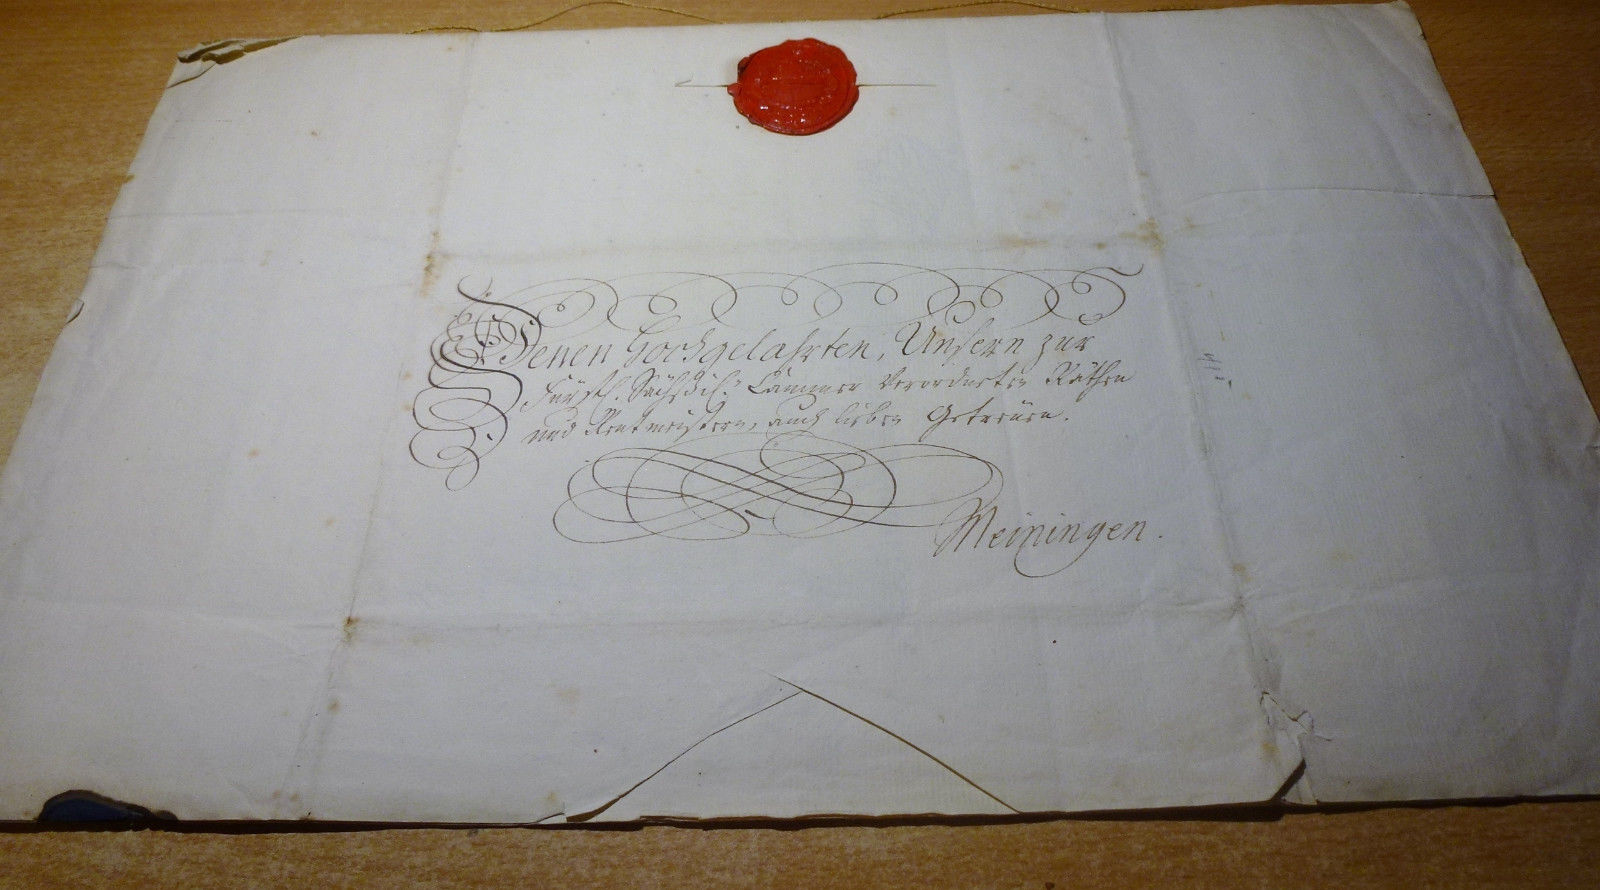 Denen Hochgelahrten, Unsern zur
Fürstl. Sächßisch. Cammer Verordneten Räthen
und Rentmeistern, auch lieben Getreuen.
Meiningen.